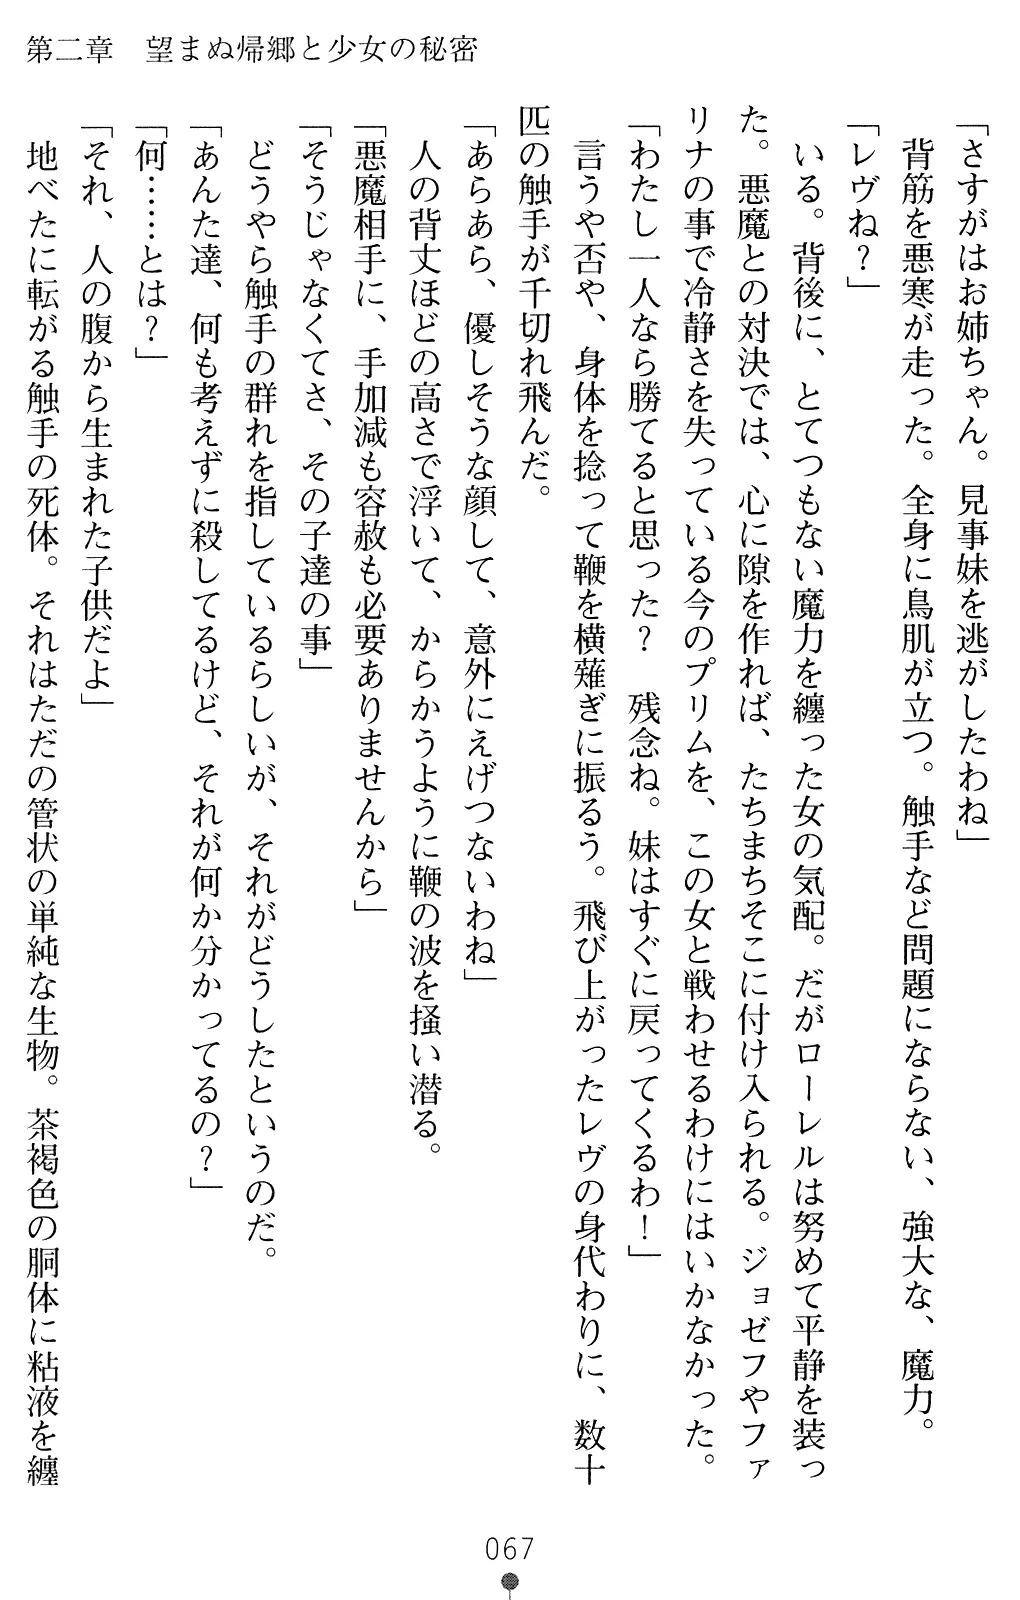 第二章　望まぬ帰郷と少女の秘密
「さすがはお姉ちゃん。見事妹を逃がしたわね」
　背筋を悪寒が走った。全身に鳥肌が立つ。触手など問題にならない、強大な、魔力。
「レヴね？」
　いる。背後に、とてつもない魔力を纏った女の気配。だがローレルは努めて平静を装っ
た。悪魔との対決では、心に隙を作れば、たちまちそこに付け入られる。ジョゼフやファ
リナの事で冷静さを失っている今のプリムを、この女と戦わせるわけにはいかなかった。
「わたし一人なら勝てると思った？　残念ね。妹はすぐに戻ってくるわ！」
　言うや否や、身体を捻って鞭を横薙ぎに振るう。飛び上がったレヴの身代わりに、数十
匹の触手が千切れ飛んだ。
「あらあら、優しそうな顔して、意外にえげつないわね」
　人の背丈ほどの高さで浮いて、からかうように鞭の波を掻い潜る。
「悪魔相手に、手加減も容赦も必要ありませんから」
「そうじゃなくてさ、その子達の事」
　どうやら触手の群れを指しているらしいが、それがどうしたというのだ。
「あんた達、何も考えずに殺してるけど、それが何か分かってるの？」
「何……とは？」
「それ、人の腹から生まれた子供だよ」
　地べたに転がる触手の死体。それはただの管状の単純な生物。茶褐色の胴体に粘液を纏
067